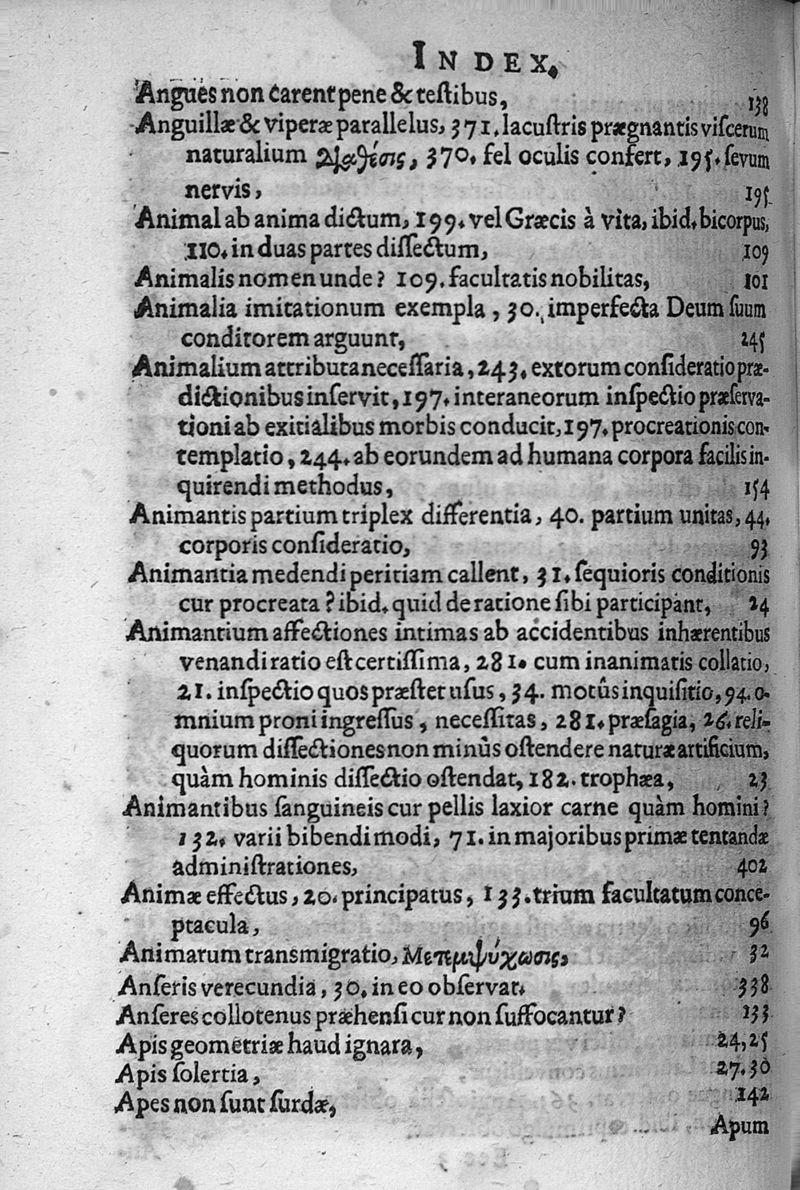 INDEX.
Angues non carent pene & testibus, 138
Anguillæ & viperæ parallelus, 371. lacustris prægnantis viscerum
naturalium διαθέσις, 370. fel oculis confert, 195. sevum
nervis, 195
Animal ab anima dictum, 199. vel Græcis à vita, ibid. bicorpus,
110. in duas partes dissectum, 109
Animalis nomen unde? 109. facultatis nobilitas, 101
Animalia imitationum exempla, 30. imperfecta Deum suum
conditorem arguunt, 245
Animalium attributa necessaria, 243. extorum consideratio præ-
dictionibus inservit, 197. interaneorum inspectio præserva-
tioni ab exitialibus morbis conducit, 197. procreationis con-
templatio, 244. ab eorundem ad humana corpora facilis in-
quirendi methodus, 154
Animantis partium triplex differentia, 40. partium unitas, 44.
corporis consideratio, 93
Animantia medendi peritiam callent, 31. sequioris conditionis
cur procreata? ibid. quid de ratione sibi participant, 24
Animantium affectiones intimas ab accidentibus inhærentibus
venandi ratio est certissima, 281. cum inanimatis collatio,
21. inspectio quos præstet usus, 34. motûs inquisitio, 94. o-
mnium proni ingressus, necessitas, 281. præsagia, 26. reli-
quorum dissectiones non minùs ostendere naturæ artificium,
quàm hominis dissectio ostendat, 182. trophæa, 23
Animantibus sanguineis cur pellis laxior carne quàm homini?
132. varii bibendi modi, 71. in majoribus primæ tentandæ
administrationes, 402
Animæ effectus, 20. principatus, 133. trium facultatum conce-
ptacula, 96
Animarum transmigratio, Μετεμψύχωσις, 32
Anseris verecundia, 30. in eo observat. 338
Anseres collotenus præhensi cur non suffocantur? 133
Apis geometriæ haud ignara, 24, 25
Apis solertia, 27. 30
Apes non sunt surdæ, 142
Apum